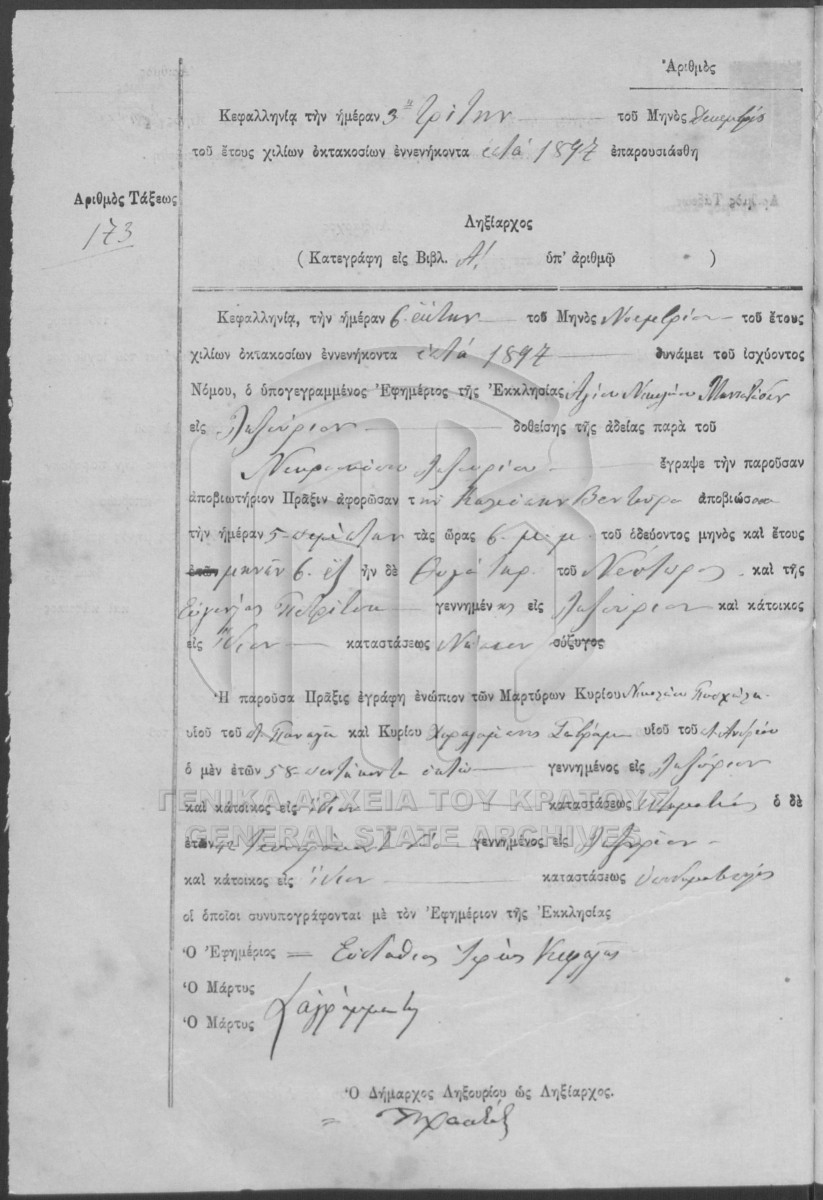 Ἀριθμὸς
Κεφαλληνίᾳ τὴν ἡμέραν 3η τρίτην τοῦ Μηνὸς
τοῦ ἔτους χιλίων ὀκτακοσίων ἐννενήκοντα ἑπτὰ 1897 ἐπαρουσιάσθη
Ἀριθμὸς Τάξεως
173
Ληξίαρχος
( Κατεγράφη εἰς Βιβλ. Α! ὑπ' ἀριθμῷ )
Κεφαλληνίᾳ, τὴν ἡμέραν 6 ἕκτην τοῦ Μηνὸς Νοεμβρίου τοῦ ἔτους
χιλίων ὀκτακοσίων ἐννενήκοντα ἑπτὰ 1897 δυνάμει τοῦ ἰσχύοντος
Νόμου, ὁ ὑπογεγραμμένος Ἐφημέριος τῆς Ἐκκλησίας Ἁγίου Νικολάου
εἰς Ληξούριον δοθείσης τῆς ἀδείας παρὰ τοῦ
Ληξουρίου ἔγραψε τὴν παροῦσαν
ἀποβιωτήριον Πρᾶξιν ἀφορῶσαν τὴν Βεντούρα ἀποβιώσασα
τὴν ἡμέραν 5 πέμπτην τὰς ὥρας 6 μ.μ. τοῦ ὁδεύοντος μηνὸς καὶ ἔτους
ἐτῶν μηνῶν 6 ἓξ ἦν δὲ θυγάτηρ τοῦ Νέστωρος καὶ τῆς
Εὐγενίας γεννημένης εἰς Ληξούριον καὶ κάτοικος
εἰς Ἴδιον καταστάσεως Νήπιον σύζυγος
Ἡ παροῦσα Πρᾶξις ἐγράφη ἐνώπιον τῶν Μαρτύρων Κυρίου Νικολάου
υἱοῦ τοῦ Παναγῆ καὶ Κυρίου υἱοῦ τοῦ Ἀνδρέου
ὁ μὲν ἐτῶν 58 πεντήκοντα ὀκτὼ γεννημένος εἰς Ληξούριον
ΓΕΝΙΚΑ ΑΡΧΕΙΑ ΤΟΥ ΚΡΑΤΟΥΣ
καὶ κάτοικος εἰς Ἴδιον καταστάσεως Κτηματίας ὁ δὲ
GENERAL STATE ARCHIVES
ἐτῶν γεννημένος εἰς Ληξούριον
καὶ κάτοικος εἰς Ἴδιον καταστάσεως
οἱ ὁποῖοι συνυπογράφονται μὲ τὸν Ἐφημέριον τῆς Ἐκκλησίας
Ὁ Ἐφημέριος = Εὐστάθιος Ἱερεὺς
Ὁ Μάρτυς
Ὁ Μάρτυς ἀγράμματοι
Ὁ Δήμαρχος Ληξουρίου ὡς Ληξίαρχος.